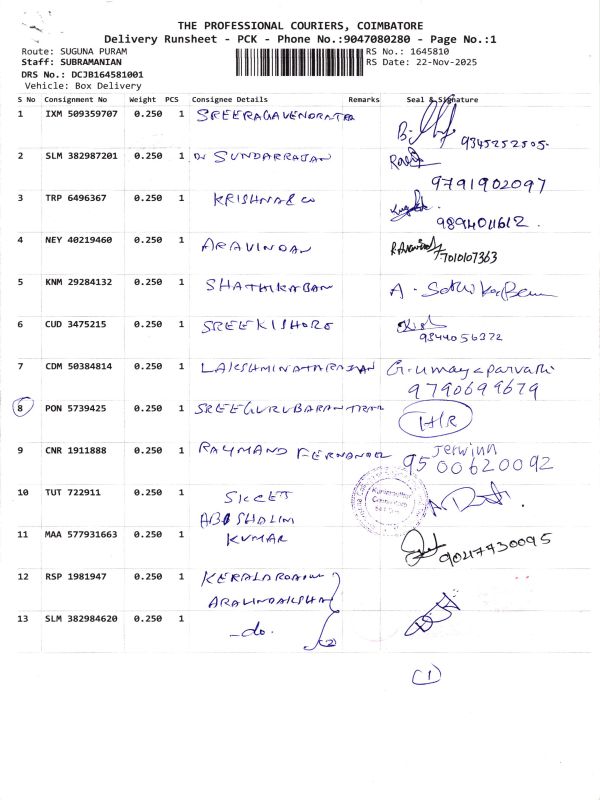 THE PROFESSIONAL COURIERS, COIMBATORE
Delivery Runsheet - PCK - Phone No.:9047080280 - Page No.:1
Route: SUGUNA PURAM RS No.: 1645810
Staff: SUBRAMANIAN RS Date: 22-Nov-2025
DRS No.: DCJB164581001
Vehicle: Box Delivery
S No Consignment No Weight PCS Consignee Details Remarks Seal & Signature
1 IXM 509359707 0.250 1
9345252505.
2 SLM 382987201 0.250 1 Dr SUNDARRAJAN
9791902097
3 TRP 6496367 0.250 1 KRISHNA & CO
9894011612.
4 NEY 40219460 0.250 1 ARAVINDAN
7010107363
5 KNM 29284132 0.250 1 SHATHIKABAN
6 CUD 3475215 0.250 1 SREEKISHORE
9344056372
7 CDM 50384814 0.250 1 G. umayaparvathi
9790699679
8 PON 5739425 0.250 1 H/R
9 CNR 1911888 0.250 1 RAYMAND FERNANDEZ Jerwinn
9500620092
10 TUT 722911 0.250 1
11 MAA 577931663 0.250 1 KUMAR
9047730095
12 RSP 1981947 0.250 1
13 SLM 382984620 0.250 1 -do.
(2)
(1)